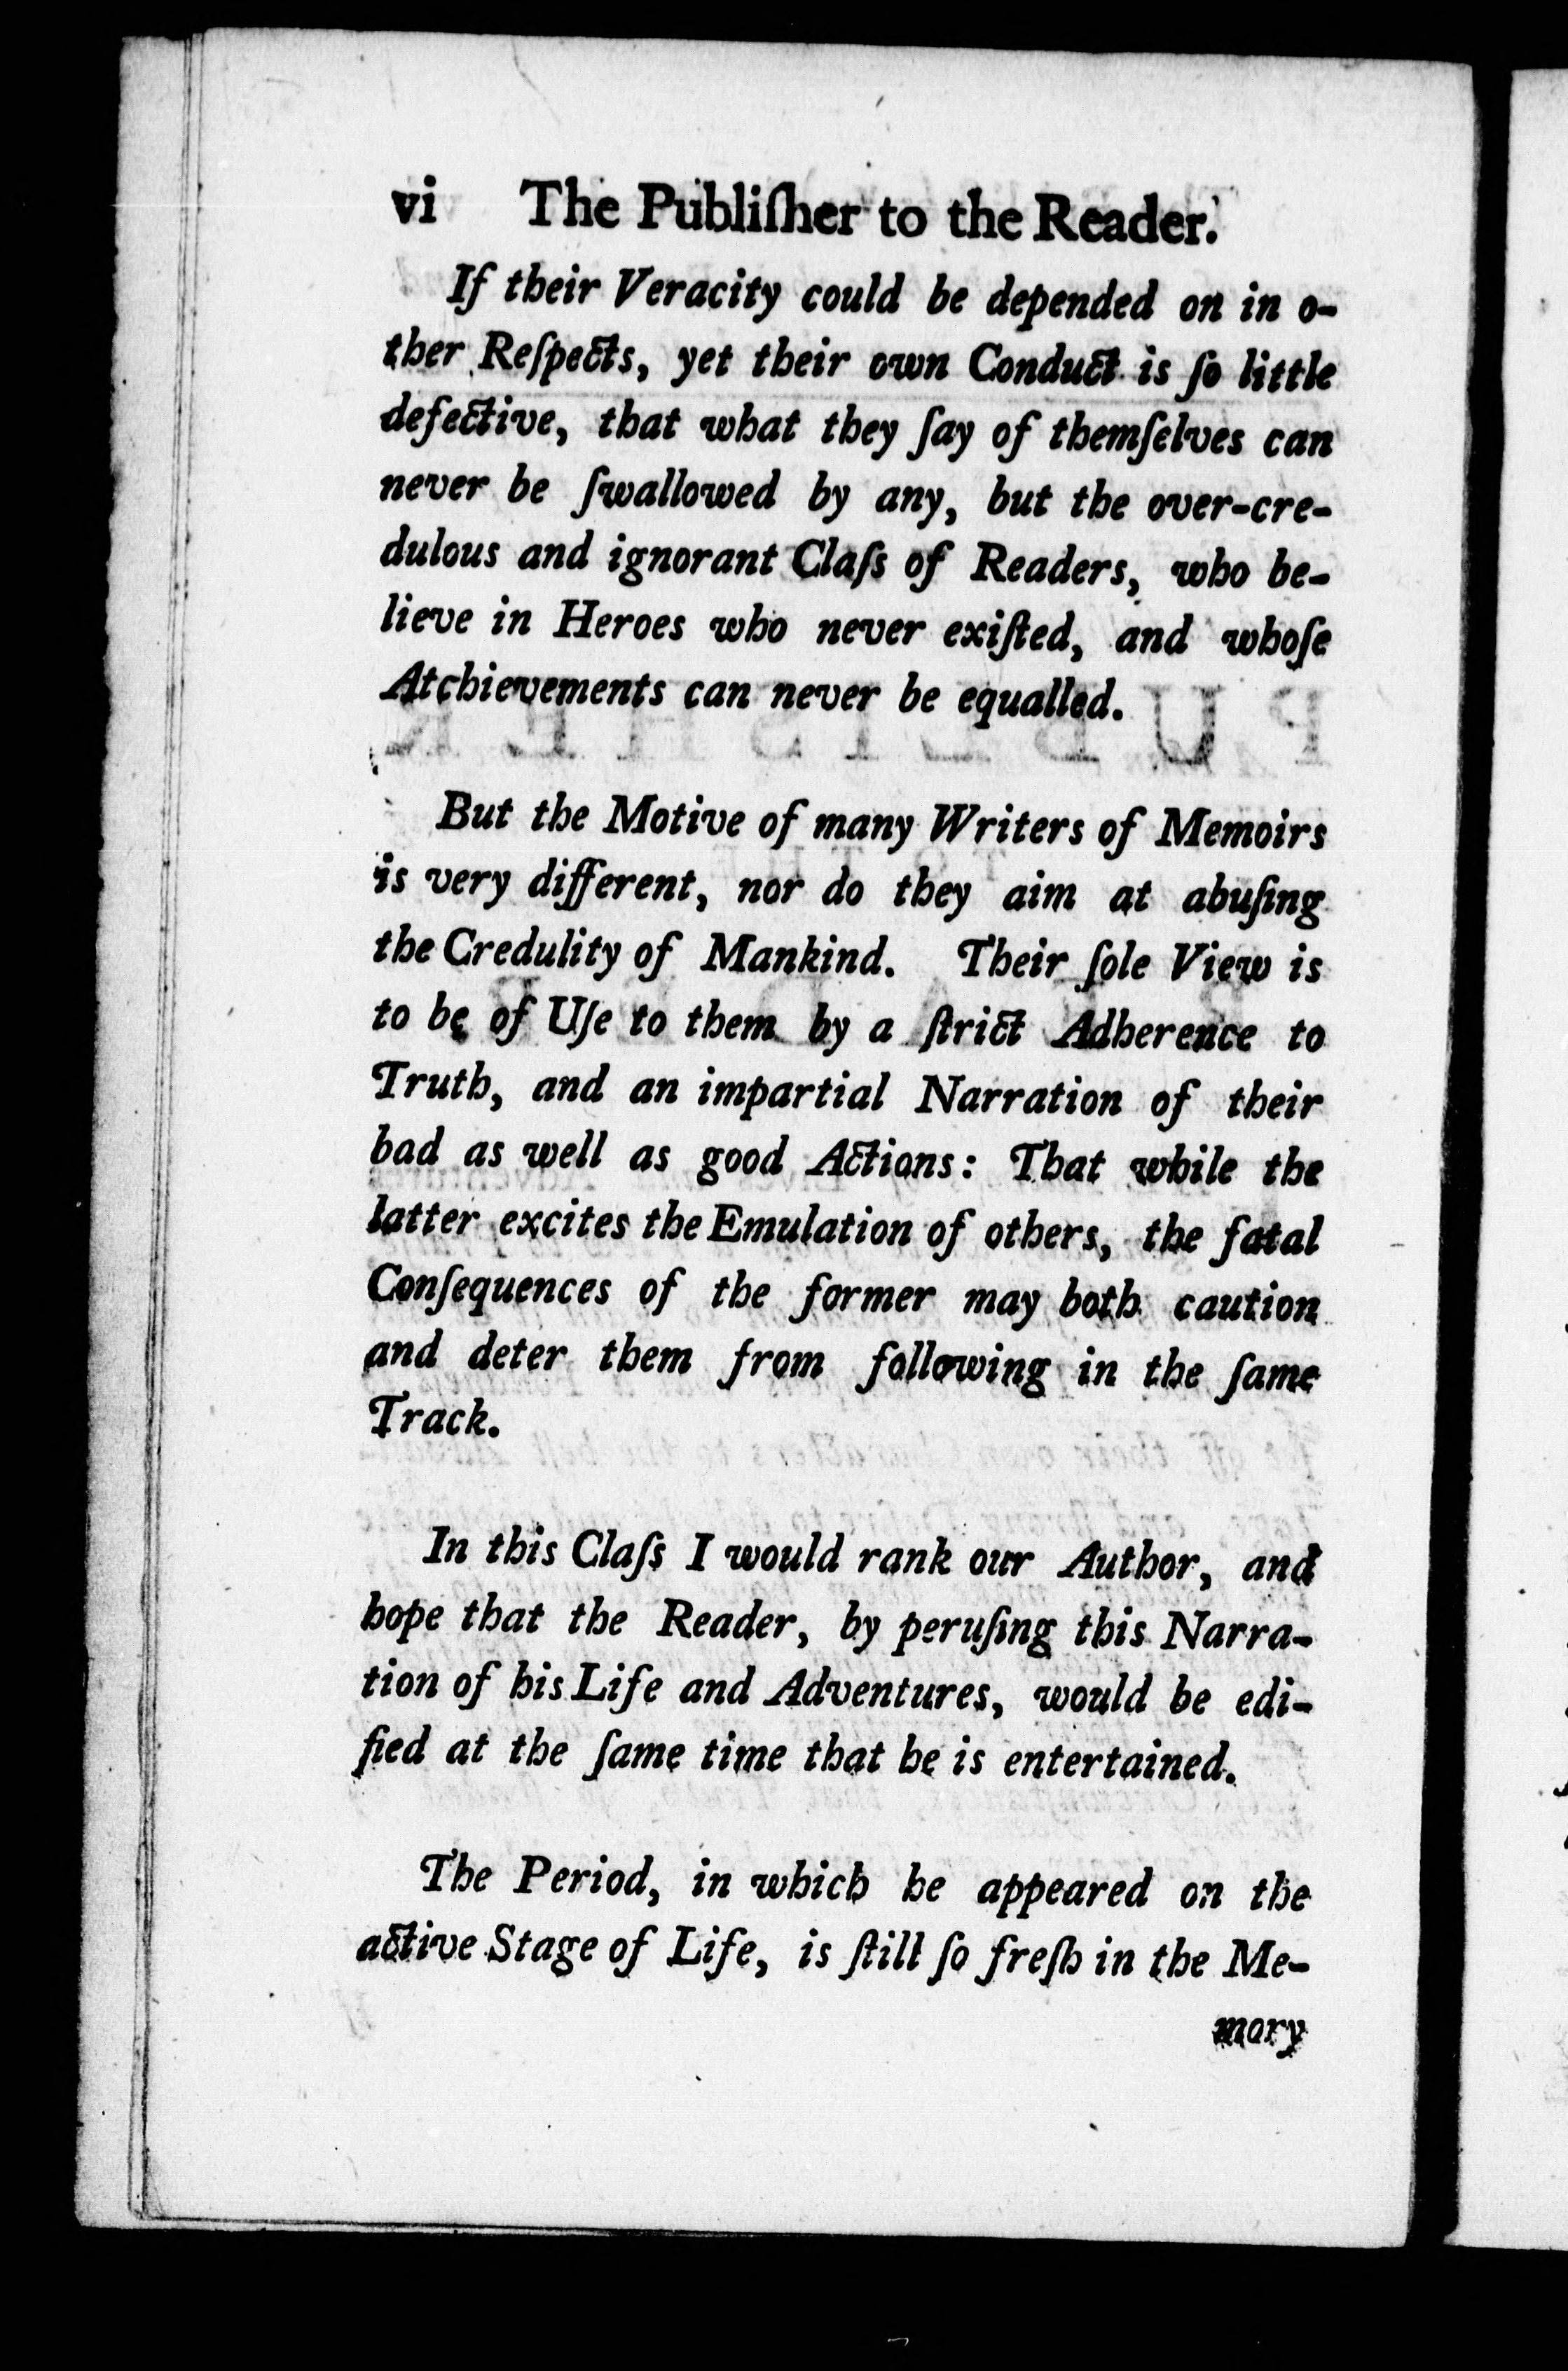 vi The Publiſher to the Reader.
If their Veracity could be depended on in o-
ther Reſpects, yet their own Conduct is ſo little
defective, that what they ſay of themſelves can
never be ſwallowed by any, but the over-cre-
dulous and ignorant Claſs of Readers, who be-
lieve in Heroes who never exiſted, and whoſe
Atchievements can never be equalled.
But the Motive of many Writers of Memoirs
is very different, nor do they aim at abuſing
the Credulity of Mankind. Their ſole View is
to be of Uſe to them by a ſtrict Adherence to
Truth, and an impartial Narration of their
bad as well as good Actions: That while the
latter excites the Emulation of others, the fatal
Conſequences of the former may both caution
and deter them from following in the ſame
Track.
In this Claſs I would rank our Author, and
hope that the Reader, by peruſing this Narra-
tion of his Life and Adventures, would be edi-
fied at the ſame time that he is entertained.
The Period, in which he appeared on the
active Stage of Life, is ſtill ſo freſh in the Me-
mory